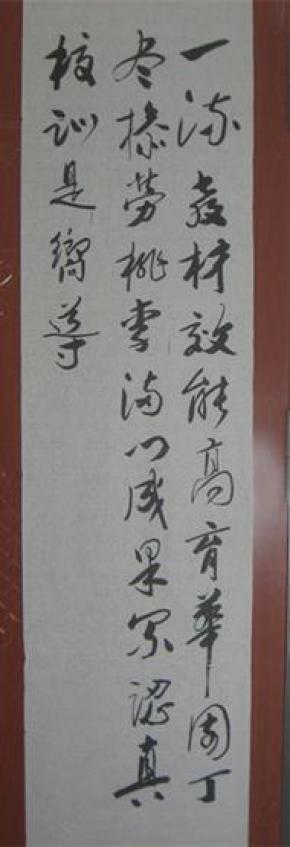 一流教材效能高育華園丁
尽操勞桃李满门成果累認真
校训是嚮導